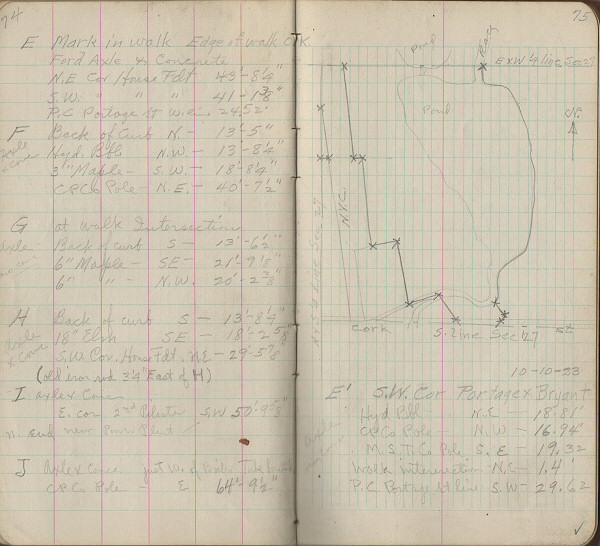 74
E Mark in walk Edge of walk O.K.
Ford Axle & Concrete
N.E. Cor House Fdt 43'-8¼"
S.W. " " " 41-1⅜"
P.C. Portage St W. 24.52'
F Back of Curb N- 13'-5"
Axle
Hyd. Bbl N.W.- 13'-8¼"
3" Maple- S.W.- 18'-8¼"
C.P.Co Pole- N.E.- 40'-7½"
G at walk Intersection
Axle Back of curb S- 13'-6½"
6" Maple- SE- 21'-9⅛"
6" " - N.W. 20'-2⅜"
H Back of curb S- 13'-8¼"
Axle & Conc 18" Elm SE- 18'-2⅝"
S.W. Cor. House Fdt. NE-29'-5⅞"
(old iron rod 3¼" East of H)
I axle & Conc
E. cor 2nd S.W 50'-9⅝"
N. End new
J Axle & Conc. just W. of
C.P.Co Pole - E 64'-9½"
75
Pond
E&W ¼ line Sec 27
Pond
N.
N.Y.C.
N & S ¼ Line Sec. 27
Cork St
S. Line Sec 27
10-10-33
E' S.W. Cor Portage & Bryant
Hyd Bbl N.E - 18.81'
C.P.Co Pole- N.W- 16.94'
M.S.T.Co Pole S.E - 19.32
Walk Intersection N.E- 1.4'
P.C. Portage St line S.W- 29.62